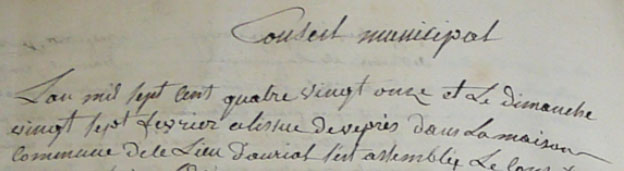 Conseil municipal
L'an mil sept cent quatre vingt onze et Le dimanche
vingt sept fevrier a lissue de vepres dans La maison
Commune de ce Lieu Dauriol s'est assemblée Le